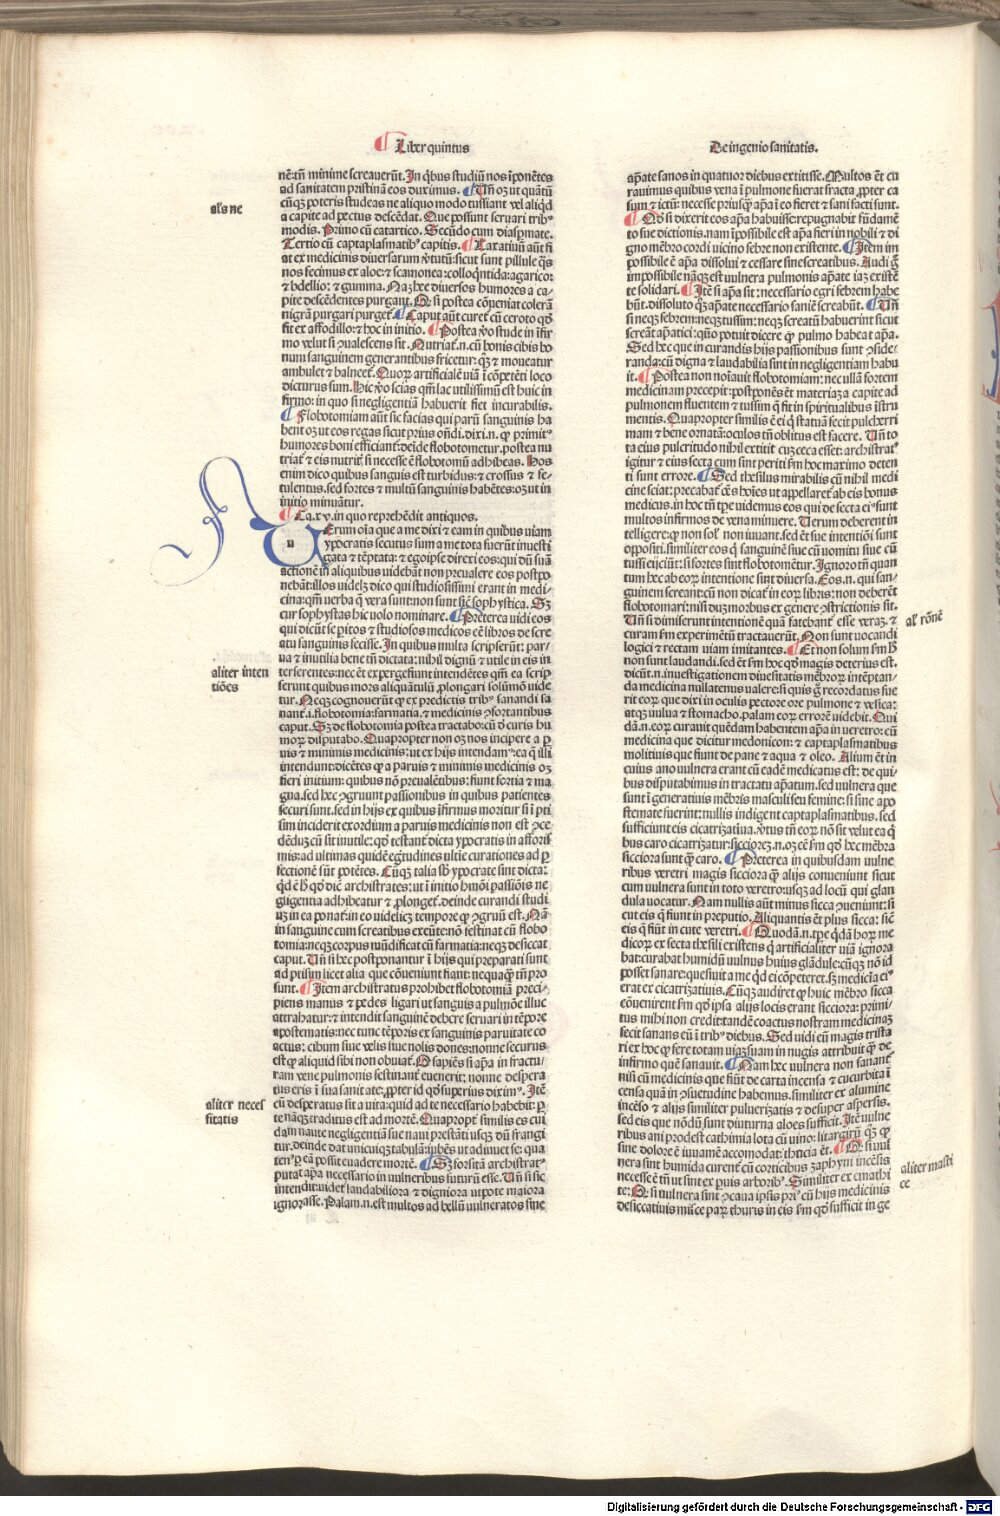 Liber quintus
nẽ:tñ minime screauerũt. In q̃bus studiũ nos ĩponẽtes
ad sanitatem pristinã eos duximus. Uñ oʒ ut quãtũ
cũqʒ poteris studeas ne aliquo modo tussiant vel aliqd̃
a capite ad pectus descẽdat. Que possunt seruari tribꝰ
modis. Primo cũ catartico. Secũdo cum diasp̃mate.
Tertio cũ captaplasmatibꝰ capitis. Laxatiuũ aũt fi
at ex medicinis diuersarum v̓tutũ: sicut sunt pillule q̃s
nos fecimus ex aloe: ⁊ scamonea: colloq̃ntida: agarico:
⁊ bdellio: ⁊ gumma. Naʒ hee diuersos humores a ca-
pite descẽdentes purgant. Q̓ si postea cõueniat colerã
nigrã purgari purget̃. Caput aũt curet̃ cũ ceroto qd̓
fit ex affodillo: ⁊ hoc in initio. Postea v̓o stude in ĩfir
mo velut si ꝯualescens sit. Nutriat̃.n. cũ bonis cibis bo
num sanguinem generantibus fricetur: q̃ʒ ⁊ moueatur
ambulet ⁊ balneet̃. Quoꝝ artificialẽ uiã ĩ cõpetẽti loco
dicturus sum. Hic v̓o scias qm̃ lac utilissimũ est huic in
firmo: in quo si negligentiã habuerit fiet incurabilis.
Flobotomiam aũt sic facias qui parũ sanguinis ha
bent oʒ ut eos regas sicut prius oñdi. dixi.n. ꝙ primitꝰ
humores boni efficiant̃: deĩde flobotometur. postea nu
triat̃ ⁊ eis nutrit̃ si necesse ẽ flobotomũ adhibeas. Hos
enim dico quibus sanguis est turbidus: ⁊ crossus ⁊ fe-
tulentus. sed fortes ⁊ multũ sanguinis habẽtes: oʒ ut in
initio minuãtur.
Ca.xv. in quo reprehẽdit antiquos.
Uerum oĩa que a me dixi ⁊ eam in quibus uiam
ypocratis secutus sum a me tota fuerũt inuesti
gata ⁊ tẽptata: ⁊ egoipse direxi eos: qui dũ suã
actionẽ in aliquibus uidebãt non preualere eos postpo
nebãt: illos uideliʒ dico qui studiosissimi erant in medi-
cina: qm̃ uerba q̃ vera sunt: non sunt sic̃ sophystica. Sʒ
cur sophystas hic uolo nominare. Preterea uidi eos
qui dicũt se pitos ⁊ studiosos medicos eẽ libros de scre
atu sanguinis fecisse. In quibus multa scripserũt: par-
ua ⁊ inutilia bene tñ dictata: nihil dignũ ⁊ utile in eis in
terserentes: nec ẽt expergefiunt intendẽtes qm̃ ea scrip
serunt quibus mors aliquãtulũ ꝓlongari solũmõ uide
tur. Neqʒ cognouerũt ꝙ ex predictis tribꝰ sanandi sa
nant̃.i. flobotomia: farmatia. ⁊ medicinis ꝯfortantibus
caput. Sʒ de flobotomia postea tractabo: cũ d̓ curis hu
moꝝ disputabo. Quapropter non oʒ nos incipere a ꝑ
uis ⁊ minimis medicinis: ut ex hijs intendamꝰ: ea q̃ illi
intendunt: dicẽtes ꝙ a paruis ⁊ minimis medicinis oʒ
fieri initium: quibus nõ preualẽtibus: fiunt fortia ⁊ ma
gna. sed hec ꝯgruunt passionibus in quibus patientes
securi sunt. sed in hijs ex quibus ĩfirmus moritur si ĩ pti
sim inciderit exordium a paruis medicinis non est ꝯce
dẽdũ: cũ sit inutile: qd̓ testant̃ dicta ypocratis in afforis
mis: ad ultimas quidẽ egtudines ultie curationes ad ꝑ
fectionẽ sũt potẽtes. Cũqʒ talia sb̓ ypocrate sint dicta:
q̃d ẽ h̓ qd̓ dic̃ archistrates: ut ĩ initio hmõi passiõis ne
gligentia adhibeatur ⁊ ꝓlonget̃. deinde curandi studi
uʒ in ea ponat̃: in eo uideliqʒ tempore ꝙ ꝯgruũ est. Nã
in sanguine cum screatibus exeũte: nõ festinat cũ flobo
tomia: neqʒ corpus mũdificat cũ farmatia: neqʒ desiccat
caput. Uñ si hec postponantur ĩ hijs qui preparati sunt
ad ptisim licet alia que cõueniunt fiant: nequaqʒ̃ tñ pro
sunt. Item archistratus prohibet flobotomiã preci-
piens manus ⁊ pedes ligari ut sanguis a pulmõe illuc
attrahatur: ⁊ intendit sanguinẽ debere seruari in tẽpore
apostematis: nec tunc tẽporis ex sanguinis paruitate co
actus: cibum siue velis siue nolis dones: nonne securus
est ꝙ aliquid sibi non obuiat̃. O sapiẽs si apã in fractu-
ram vene pulmonis festinant̃ euenerit: nonne despera
tus eris ĩ sua sanitate. ꝓpter id qd̓ superius diximꝰ. Itẽ
cũ desperatus sit a uita: quid ad te necessario habebit: ꝑ
te nãqʒ traditus est ad mortẽ. Quaproptˀ similis es cui
dam naute negligentiã sue naui prestãti usqʒ dũ frangi
tur. deinde dat unicuiqʒ tabulã: iubẽs ut adiuuet se: qua
tenꝰ ꝑ eã possit euadere mortẽ. Sʒ forsitã archistratꝰ
putat apã necessario in vulneribus futurũ esse. Uñ si sic
intendit: uidet̃ laudabiliora ⁊ digniora utpote maiora
ignorasse. Palam.n. est multos ad bellũ uulneratos sine
De ingenio sanitatis.
ap̃ate sanos in quatuor diebus extitisse. Multos ẽt cu
rauimus quibus vena ĩ pulmone fuerat fracta ꝓpter ca
sum ⁊ ictũ: necesse priusqʒ̃ apã ĩ eo fieret ⁊ sani facti sunt.
Qd̓ si dixerit eos apã habuisse: repugnabit̃ fũdamẽ
to sue dictionis. nam ĩpossibile est apã fieri in nobili ⁊ di
gno mẽbro cordi vicino febre non existente. Item im
possibile ẽ apã dissolui ⁊ cessare sine screatibus. Audi g̃
impossibile nãqʒ est uulnera pulmonis apãte iaʒ existẽ
te solidari. Itẽ si apã sit: necessario egri febrem habe
bũt. dissoluto qʒ̃ apãte necessario saniẽ screabũt. Uñ
si neqʒ febrem: neqʒ tussim: neqʒ screatũ habuerint sicut
screãt apãtici: qũo potuit dicere ꝙ pulmo habeat apã.
Sed hec que in curandis hijs passionibus sunt ꝯside-
randa: cũ digna ⁊ laudabilia sint in negligentiam habu
it. Postea non noĩauit flobotomiam: nec ullã fortem
medicinam precepit: postponẽs ẽt materiaʒ a capite ad
pulmonem fluentem ⁊ tussim q̃ fit in spiritualibus ĩstru
mentis. Quapropter similis ẽ ei q̃ statuã fecit pulcherri
mam ⁊ bene ornatã: oculos tñ oblitus est facere. Uñ to
ta eius pulcritudo nihil extitit cuʒ ceca esset: archistratꝰ
igitur ⁊ eius secta cum sint periti sm̃ hoc maximo deten
ti sunt errore. Sed thesilus mirabilis cũ nihil medi
cine sciat: precabat̃ oẽs hoĩes ut appellaret̃ ab eis bonus
medicus. in hoc tñ tp̃e uidemus eos qui de secta eiꝰ sunt
multos infirmos de vena minuere. Uerum deberent in
telligere: ꝙ non solˀ non iuuant. sed ẽt sue intentiõi sunt
oppositi. similiter eos q̃ sanguinẽ siue cũ uomitu siue cũ
tussi eijciũt: si fortes sint flobotomẽtur. Ignoro tñ quan
tum hec ab eoꝝ intentione sint diuersa. Eos.n. qui san-
guinem screant: cũ non dicat̃ in eoꝝ libris: non deberẽt
flobotomari: nisi duʒ morbus ex genere ꝯstrictionis sit.
Uñ si dimiserunt intentionẽ quã fatebant̃ esse veraʒ. ⁊
curam sm̃ experimẽtũ tractauerũt. Non sunt uocandi
logici ⁊ rectam uiam imitantes. Et non solum sm̃ h̓
non sunt laudandi. sed ẽt sm̃ hoc qd̓ magis deterius est.
dicũt.n. inuestigationem diuersitatis mẽbroꝝ intẽptan-
da medicina nullatenus valere: si quis g̃ recordatus fue
rit eoꝝ que dixi in oculis pectore ore pulmone ⁊ vesica:
atqʒ uulua ⁊ stomacho. palam eoꝝ errorẽ uidebit. Qui
dã.n. eoꝝ curauit quẽdam habentem apãa in ueretro: cũ
medicina que dicitur medonicon: ⁊ captaplasmatibus
molitiuis que fiunt de pane ⁊ aqua ⁊ oleo. Alium ẽt in
cuius ano vulnera erant cũ eadẽ medicatus est: de qui-
bus disputabimus in tractatu apãtum. sed vulnera que
sunt ĩ generatiuis mẽbris masculi seu femine: si sine apo
stemate fuerint: nullis indigent captaplasmatibus. sed
sufficiunt eis cicatrizatiua. v̓tus tñ eoꝝ nõ sit velut ea q̃
bus caro cicatrizatur: siccioreʒ.n. oʒ eẽ sm̃ qd̓ hec mẽbra
sicciora sunt qʒ̃ caro. Preterea in quibusdam uulne
ribus veretri magis sicciora qʒ̃ alijs conueniunt sicut
cum vulnera sunt in toto veretro: usqʒ ad locũ qui glan
dula uocatur. Nam nullis aũt minus sicca ꝯueniunt: si
cut eis q̃ fiunt in preputio. Aliquantis ẽt plus sicca: sic̃
eis q̃ fiũt in cute veretri. Quodã.n. tp̃e q̃dã hoꝝ me
dicoꝝ ex secta thesili existens q̃ artificialiter uiã ignora
bat: curabat humidũ vulnus huius glãdule: cũqʒ nõ id
posset sanare: quesiuit a me q̃d ei cõpeteret. sʒ medicĩa eiꝰ
erat ex cicatrizatiuis. Cũqʒ audiret ꝙ huic mẽbro sicca
cõuenirent sm̃ qd̓ ipsa alijs locis erant sicciora: primi-
tus mihi non credit: tandẽ coactus nostram medicinaʒ
fecit sanans eũ ĩ tribꝰ diebus. Sed uidi eũ magis trista
ri ex hoc ꝙ fere totam uiaʒ suam in nugis attribuit qʒ̃ de
infirmo quẽ sanauit. Nam hec vulnera non sanant̃
nisi cũ medicinis que fiũt de carta incensa ⁊ cucurbita ĩ
censa quã in ꝯsuetudine habemus. similiter ex alumine
incẽso ⁊ alijs similiter puluerizatis ⁊ desuper aspersis.
sed eis que nõdũ sunt diuturna aloes sufficit. Itẽ uulne
ribus ani prodest cathimia lota cũ uino: litargirũ qʒ̃ ꝙ
sine dolore ẽ iuuamẽ accomodat: thucia ẽt. Q̓ si vul
nera sunt humida curent̃ cũ corticibus zaphyni incẽsis
necesse ẽ tñ ut sint ex puis arboribꝰ. Similiter ex emathi
te: Q̓ si vulnera sint ꝯcaua ipsis priꝰ cũ hijs medicinis
desiccatiuis misce paꝝ thuris in eis sm̃ qd̓ sufficit in ge
als ne
aliter inten
tiões
aliter neces
sitatis
al̓ rõnẽ
aliter masti
ce
Digitalisierung gefördert durch die Deutsche Forschungsgemeinschaft - DFG